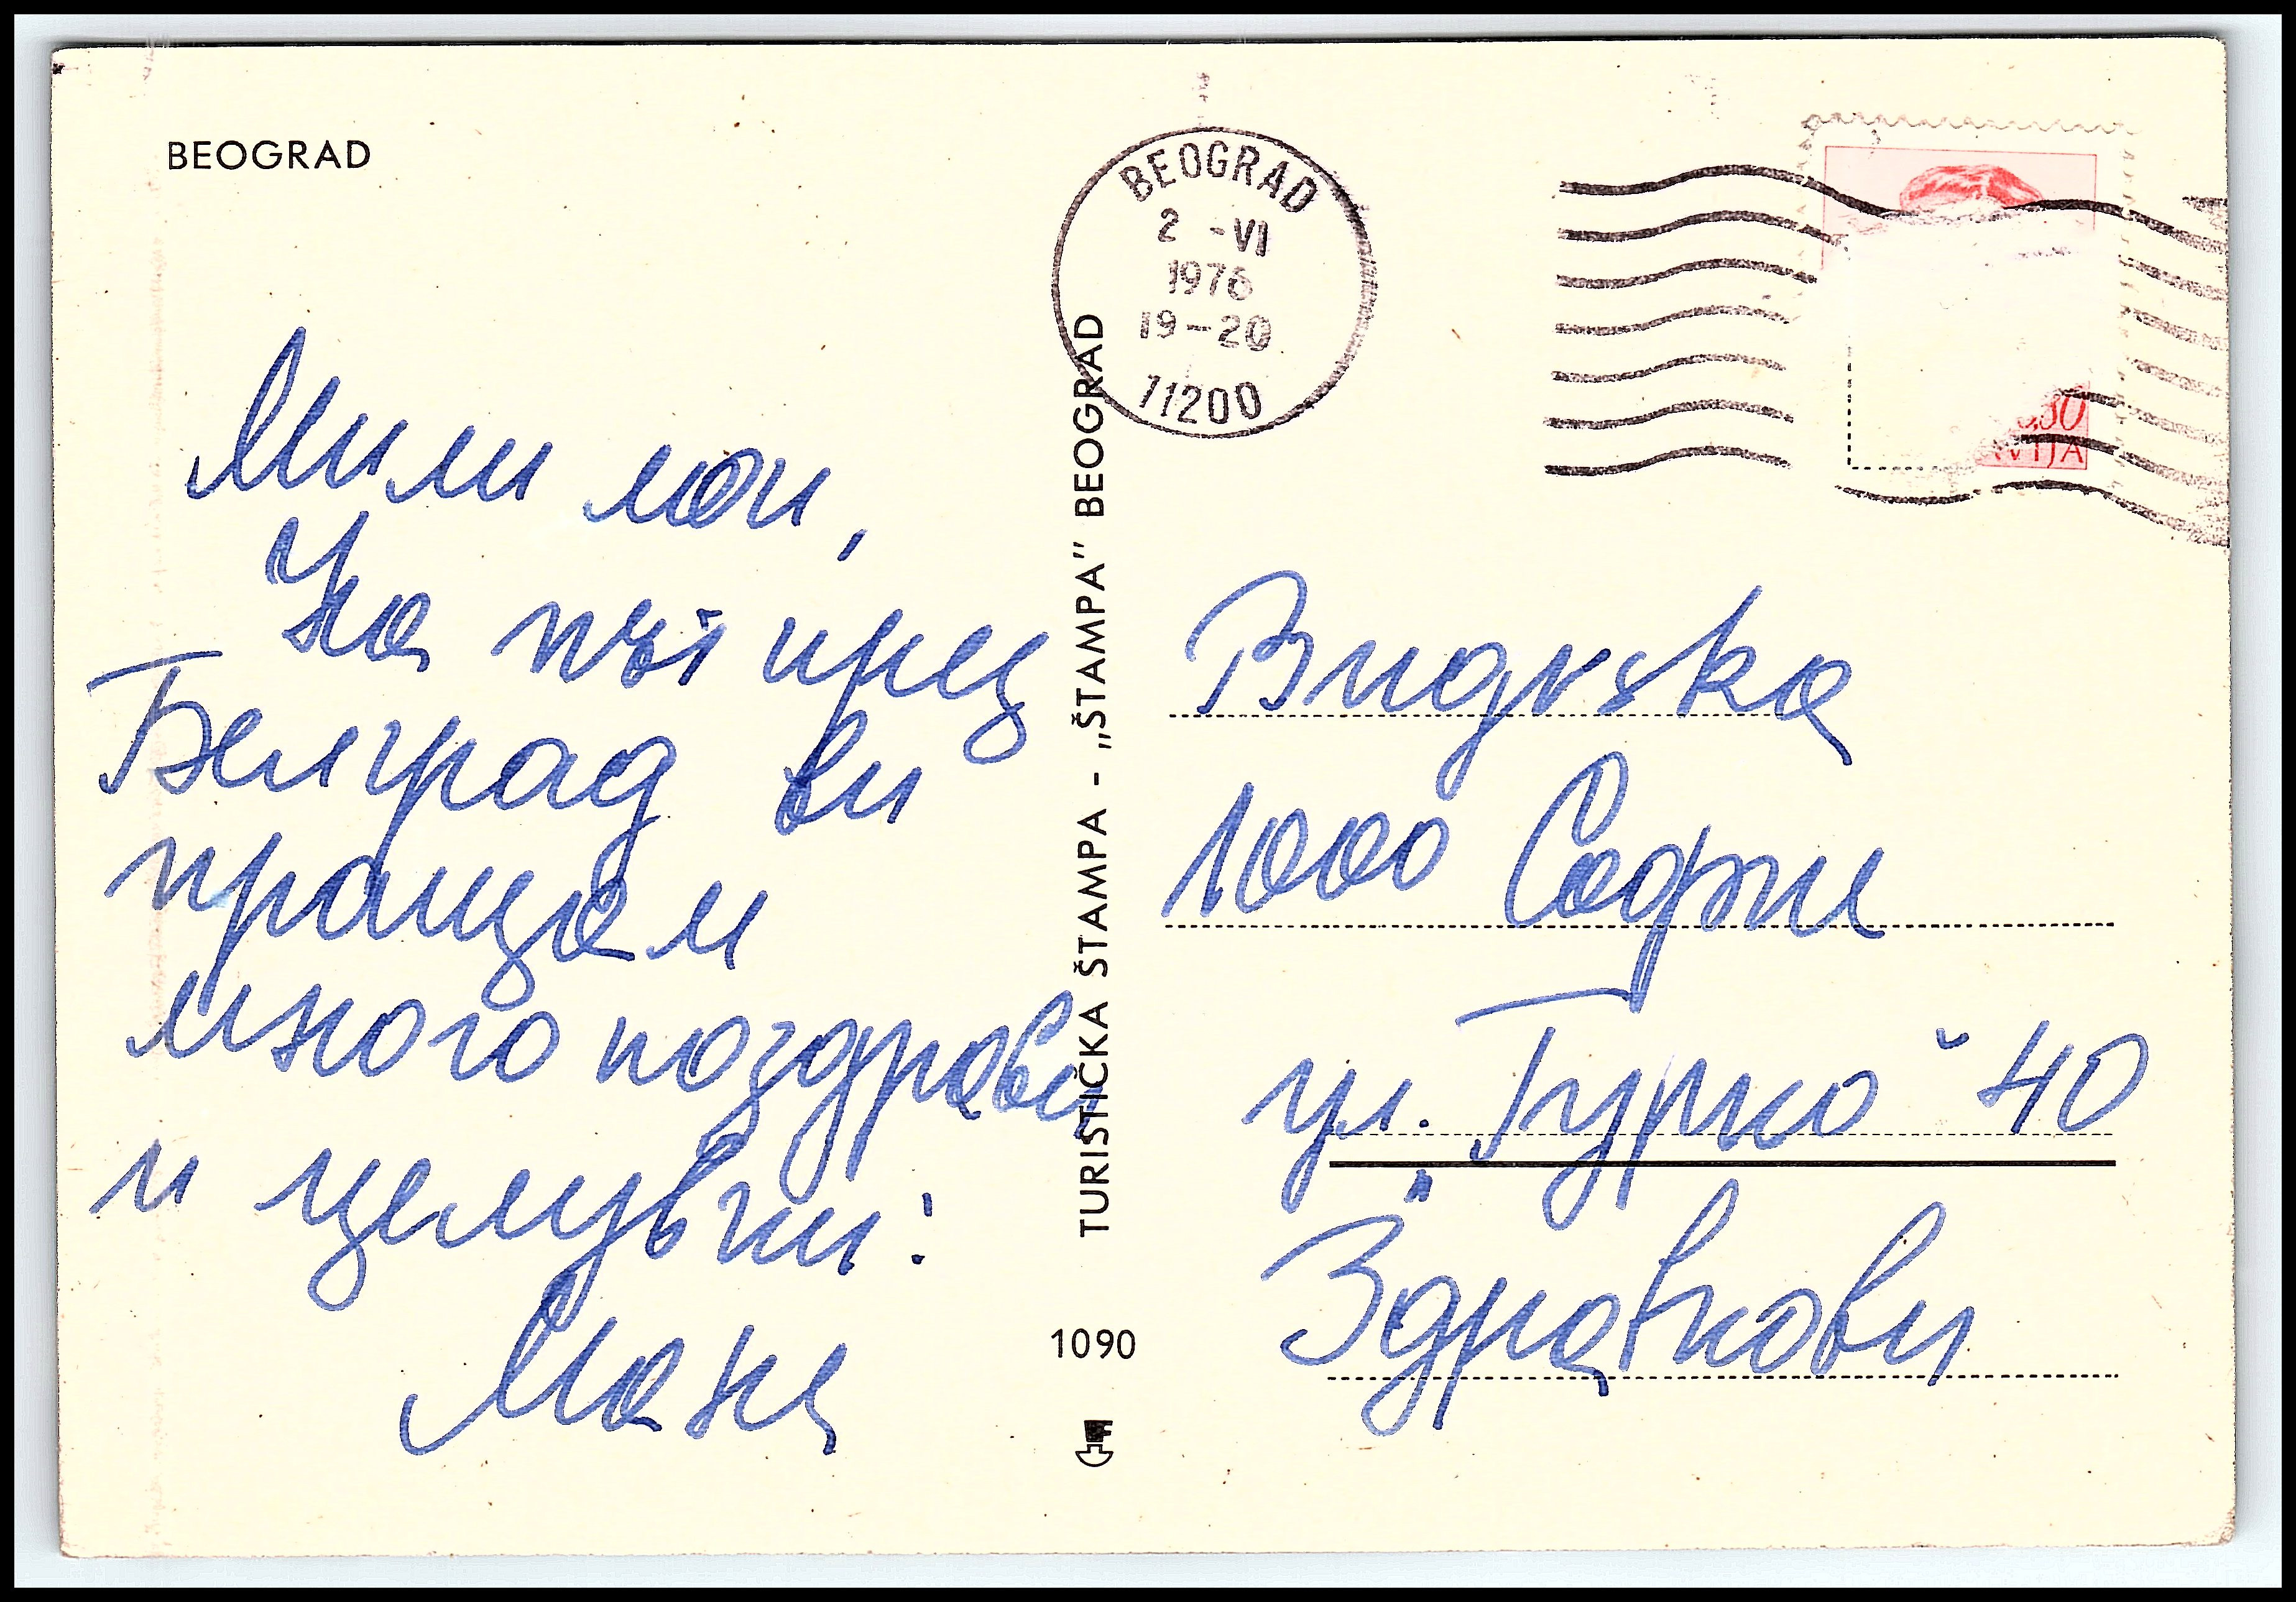 BEOGRAD
Мили мои,
На път през
Белград ви
пращам
много поздрави
и целувки:
TURISTIČKA ŠTAMPA - „ŠTAMPA" BEOGRAD
1090
BEOGRAD
2 -VI
1976
19-20
11200
1000 София
ул. „Гурко" 40
Здравкови